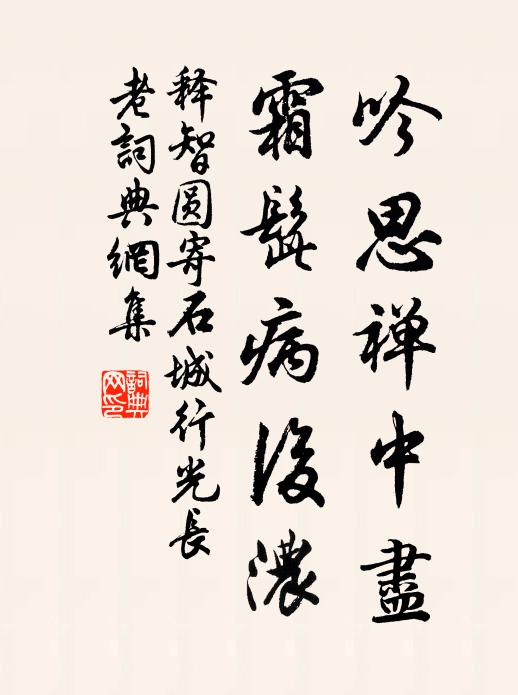 吟思禅中盡
霜髭病後濃
释智圆寄石城行光長
老詞典網集
詞典
网印